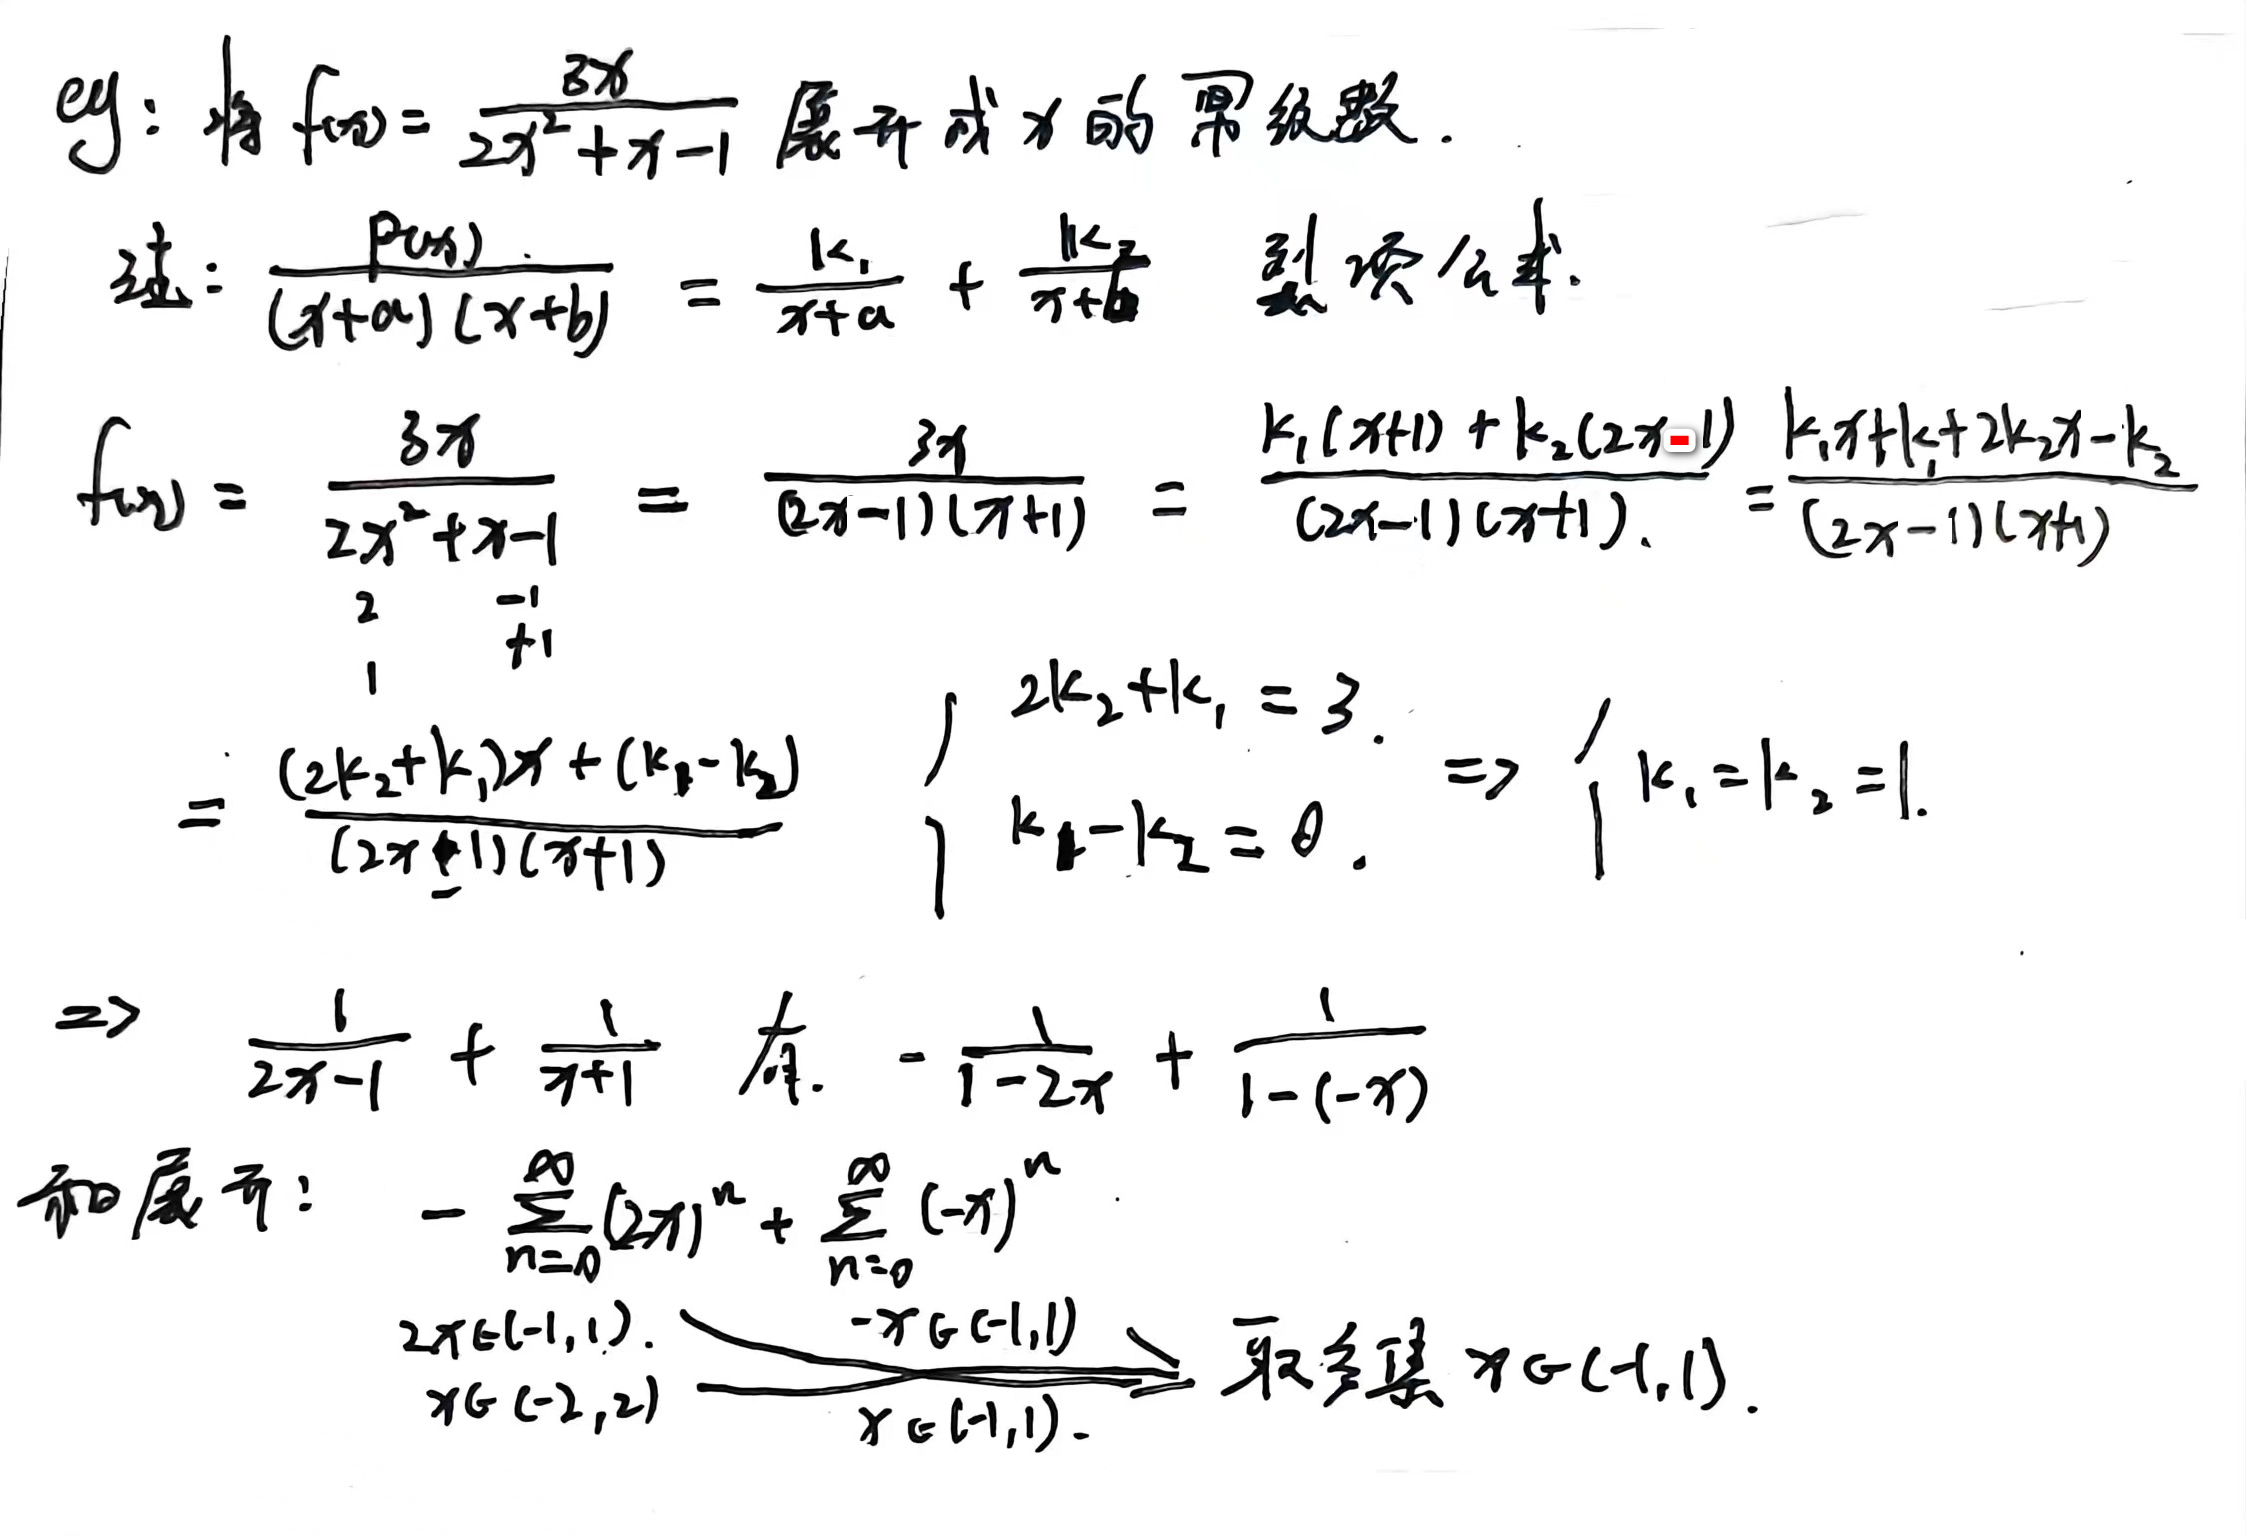 eg: 将 f(x) = 3x / (2x²+x-1) 展开成 x 的幂级数.
注: P(x) / ((x+a)(x+b)) = k₁/(x+a) + k₂/(x+b) 裂项公式.
f(x) = 3x / (2x²+x-1) = 3x / ((2x-1)(x+1)) = (k₁(x+1)+k₂(2x-1)) / ((2x-1)(x+1)). = (k₁x+k₁+2k₂x-k₂) / ((2x-1)(x+1))
2 -1
1 +1
= ((2k₂+k₁)x+(k₁-k₂)) / ((2x-1)(x+1)) { 2k₂+k₁=3. k₁-k₂=0. => { k₁=k₂=1.
=> 1/(2x-1) + 1/(x+1) 有. -1/(1-2x) + 1/(1-(-x))
和展开: -∑_{n=0}^{∞}(2x)ⁿ + ∑_{n=0}^{∞}(-x)ⁿ
2x∈(-1,1). -x∈(-1,1)
x∈(-2,2) x∈(-1,1). => 取交集 x∈(-1,1).